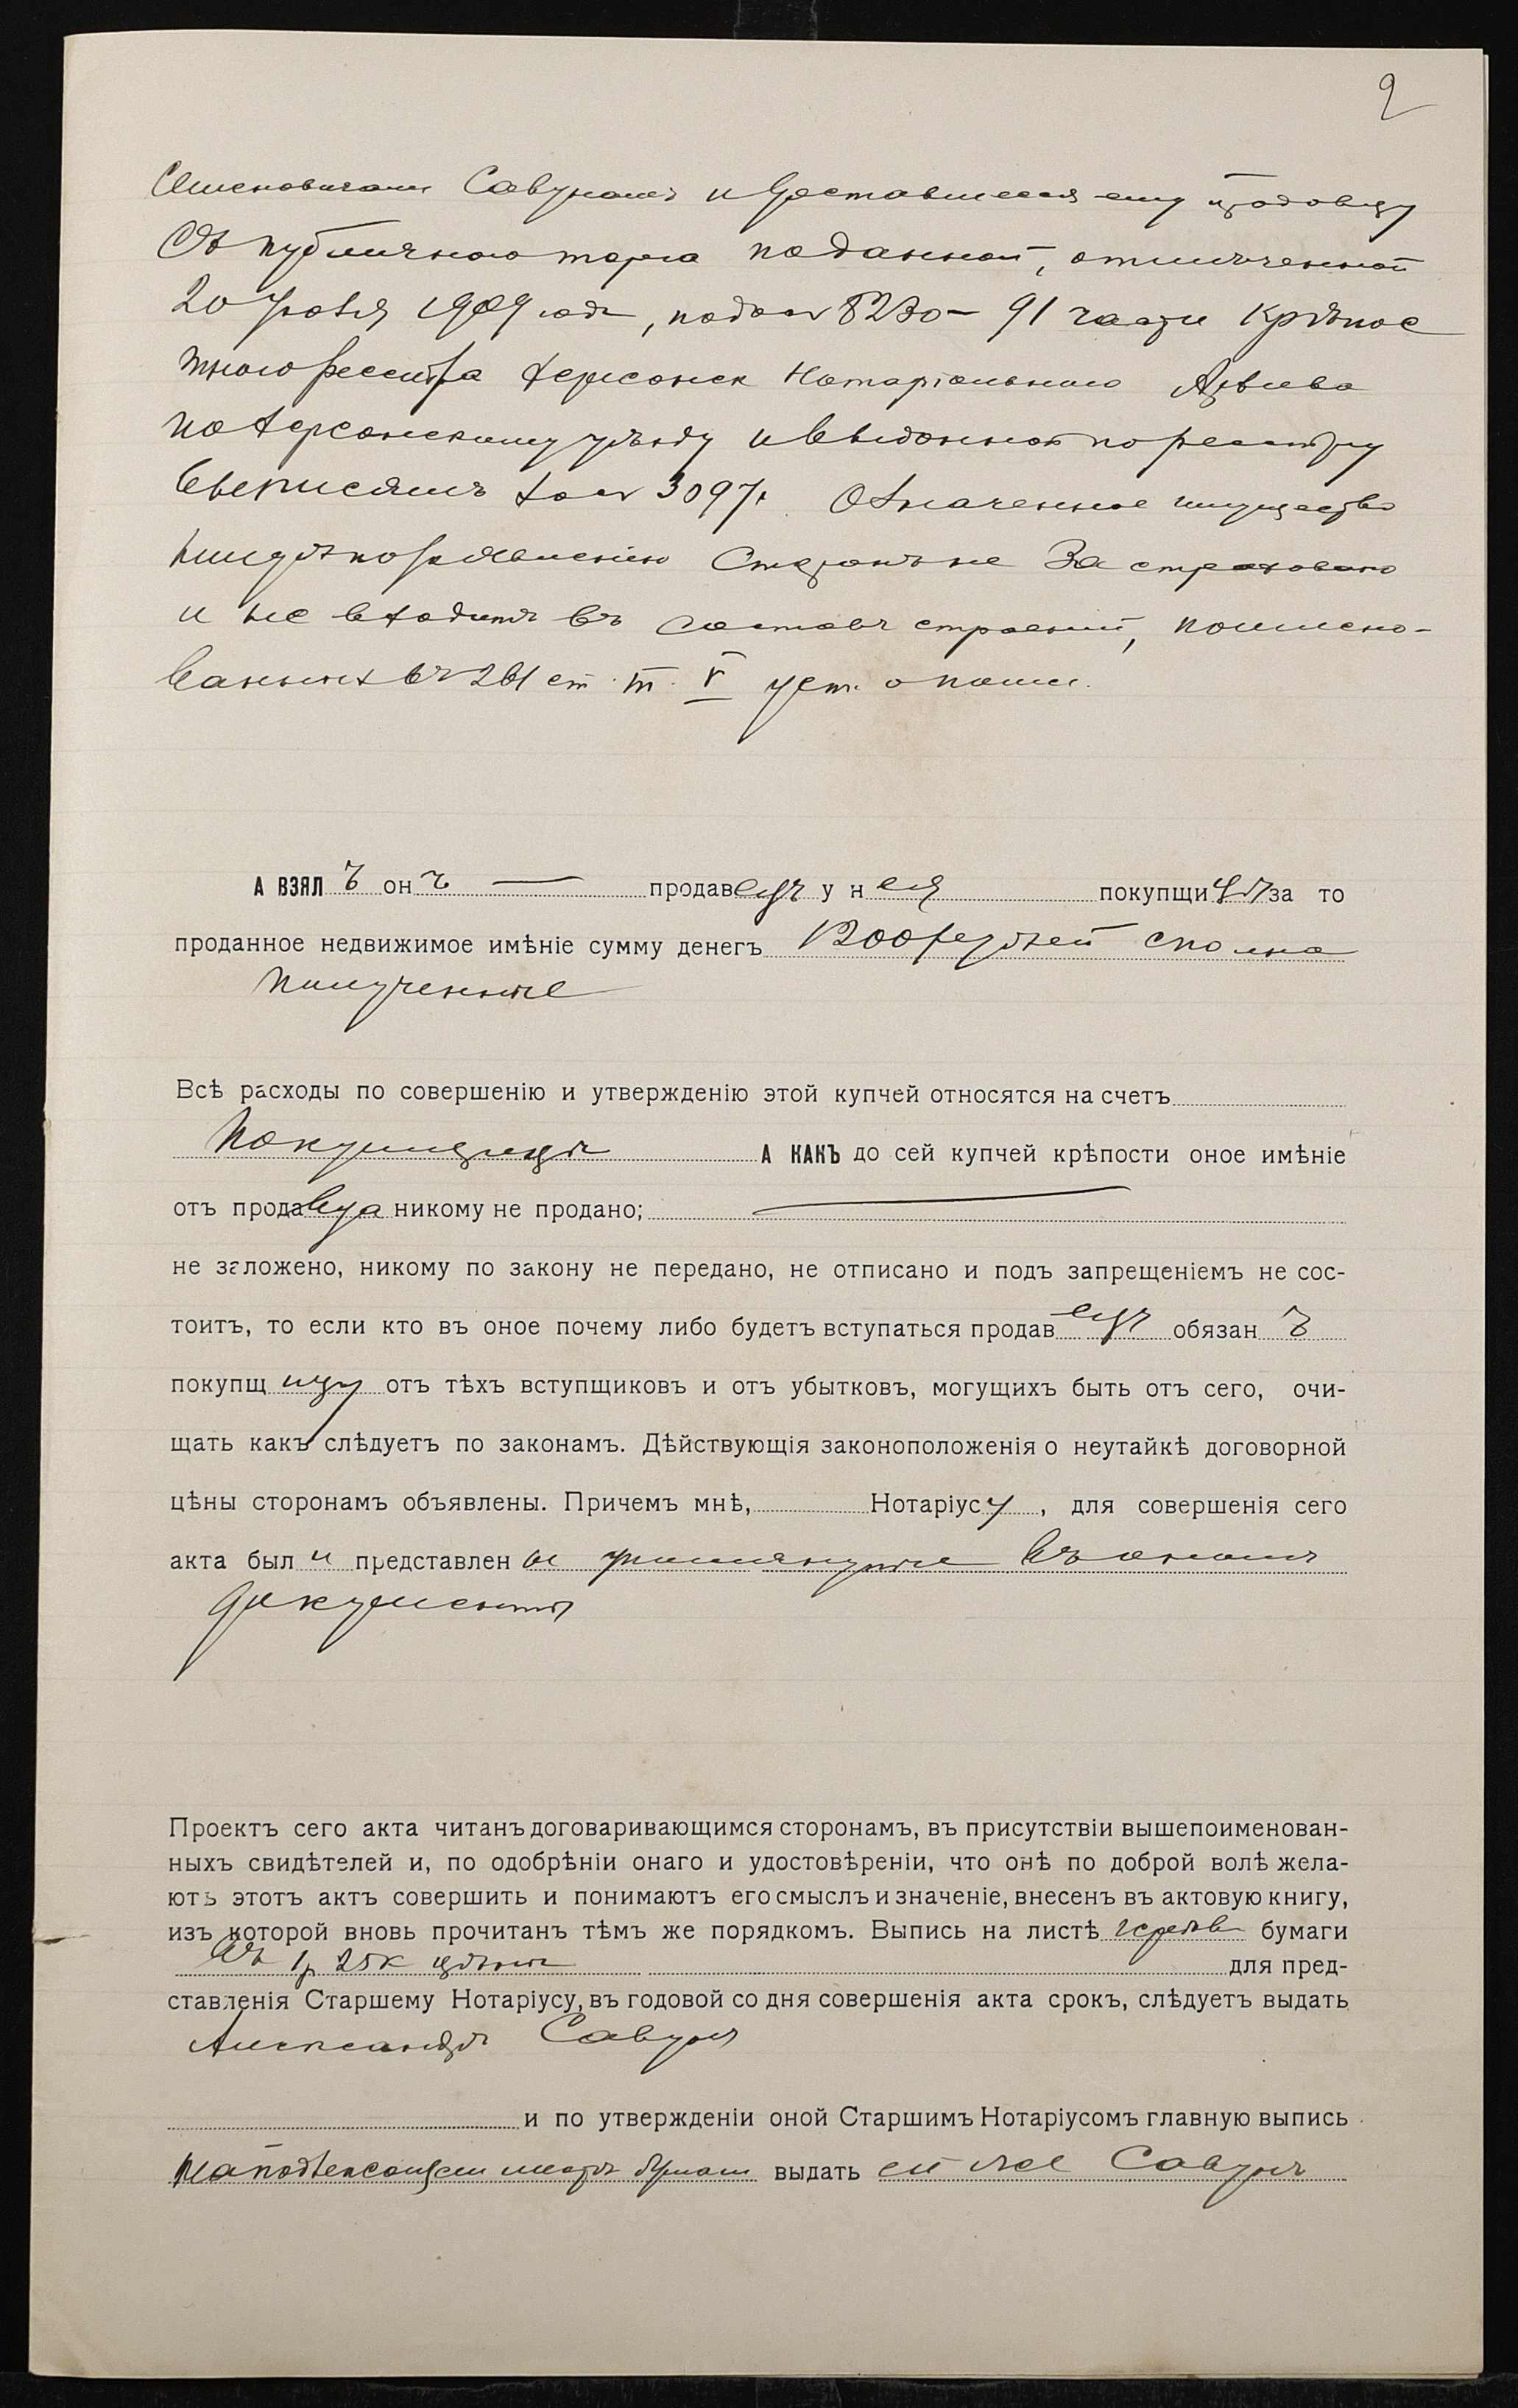 2
Семеновичами Савунами и доставшееся ему продавцу
Съ публичнаго торга по данной, отмѣченной
20 1909 года, подъ № 8230 – 91 части крѣпос
тного реестра Херсонск Нотаріальнаго Архива
по Херсонскому уѣзду и выданной по реестру
выписямъ за № 3097. Означенное имущество
по заявленію Сторонъ не застраховано
и не входитъ въ составъ строеній, поимено-
ванныхъ въ ст. т. V уст. о пошл.
А ВЗЯЛЪ онъ — продавецъ у нея покупщицы за то
проданное недвижимое имѣніе сумму денегъ 1200 рублей сполна
полученные
Всѣ расходы по совершенію и утвержденію этой купчей относятся на счетъ
покупщицы А КАКЪ до сей купчей крѣпости оное имѣніе
отъ продавца никому не продано; —
не заложено, никому по закону не передано, не отписано и подъ запрещеніемъ не сос-
тоитъ, то если кто въ оное почему либо будетъ вступаться продавецъ обязанъ
покупщицу отъ тѣхъ вступщиковъ и отъ убытковъ, могущихъ быть отъ сего, очи-
щать какъ слѣдуетъ по законамъ. Дѣйствующія законоположенія о неутайкѣ договорной
цѣны сторонамъ объявлены. Причемъ мнѣ, Нотаріусу, для совершенія сего
акта были представлены упомянутые въ ономъ
документы
Проектъ сего акта читанъ договаривающимся сторонамъ, въ присутствіи вышепоименован-
ныхъ свидѣтелей и, по одобрѣніи онаго и удостовѣреніи, что онѣ по доброй волѣ жела-
ютъ этотъ актъ совершить и понимаютъ его смыслъ и значеніе, внесенъ въ актовую книгу,
изъ которой вновь прочитанъ тѣмъ же порядкомъ. Выпись на листѣ гербов бумаги
въ 1 р 25 к цѣною для пред-
ставленія Старшему Нотаріусу, въ годовой со дня совершенія акта срокъ, слѣдуетъ выдать
Александрѣ Савунъ
и по утвержденіи оной Старшимъ Нотаріусомъ главную выпись
на подлежащемъ листѣ бумаги выдать ей же Савунъ